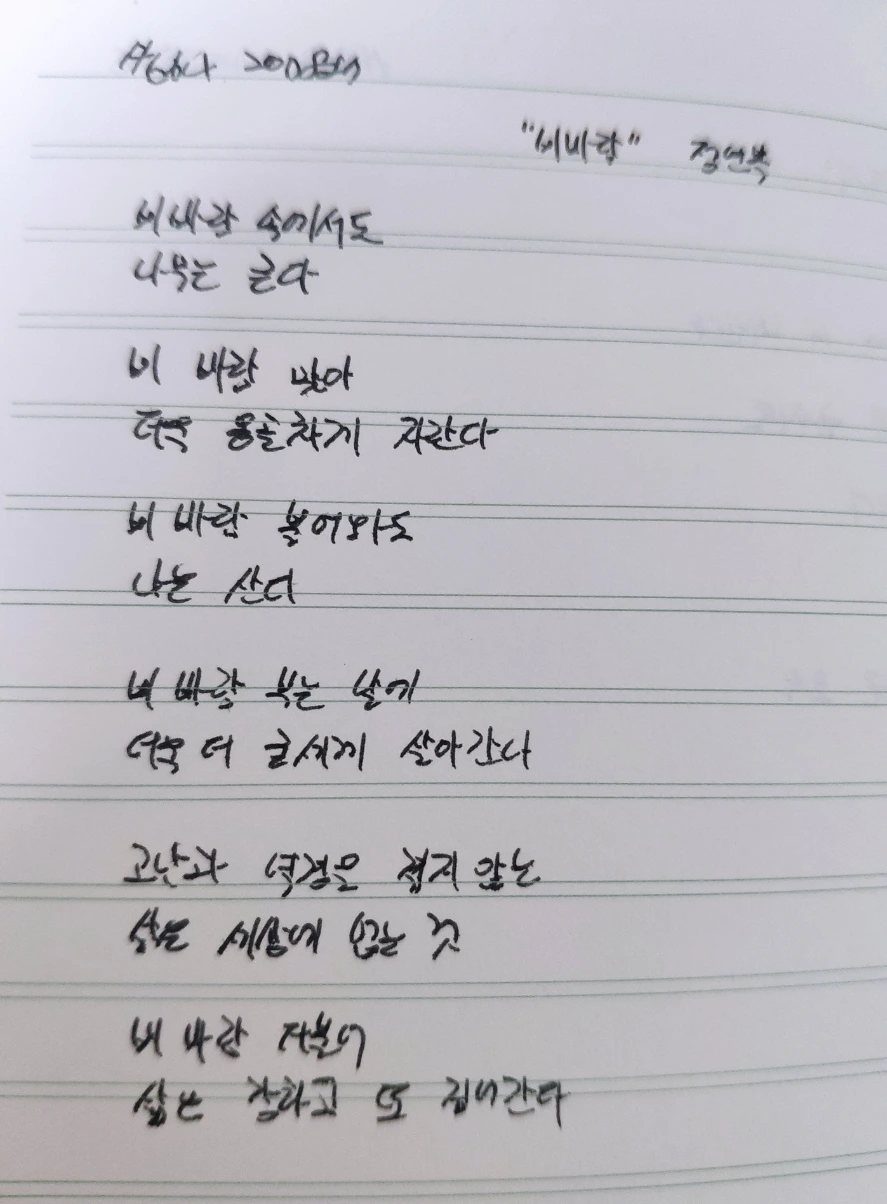 "비바람" 정연복
비바람 속에서도
나무는 큰다
비 바람 맞아
더욱 옹골차게 자란다
비 바람 불어와도
나는 산다
비 바람 부는 날에
더욱 더 굳세게 살아간다
고난과 역경을 겪지 않는
삶은 세상에 없는 것
비 바람 더불어
삶은 강하고 또 깊어간다